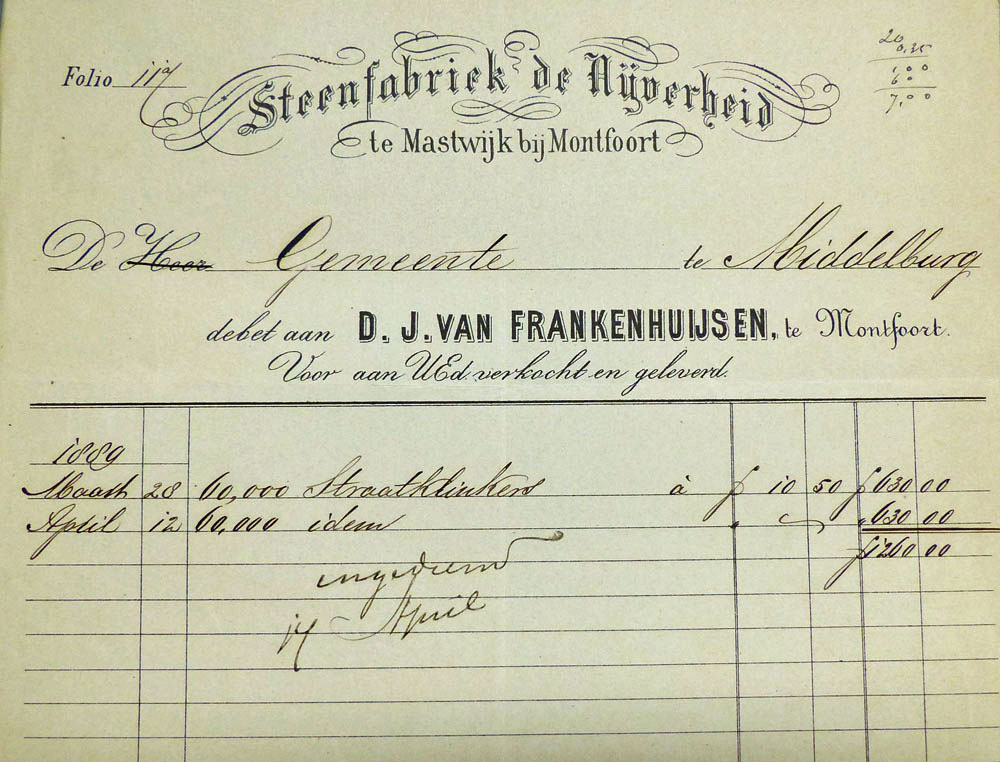 20
0,35
1,00
6,00
7,00
Folio 117
Steenfabriek de Nijverheid
te Mastwijk bij Montfoort
De Heer Gemeente te Middelburg
debet aan D. J. VAN FRANKENHUIJSEN, te Montfoort.
Voor aan UEd. verkocht en geleverd.
1889
Maart 28 60,000 Straatklinkers à f 10 50 f 630 00
April 12 60,000 idem " " 630 00
f 1260 00
ingediend
17 April